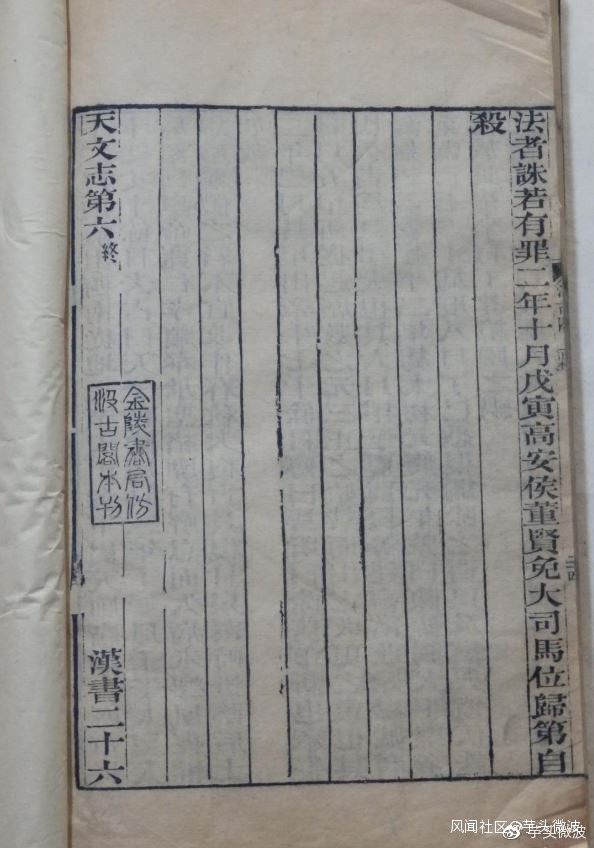 法者誅若有罪二年十月戊寅高安侯董賢免大司馬位歸第自
殺
金陵書局仿
汲古閣本刊
天文志第六終
漢書二十六
风闻社区@芋头微波
@芋头微波